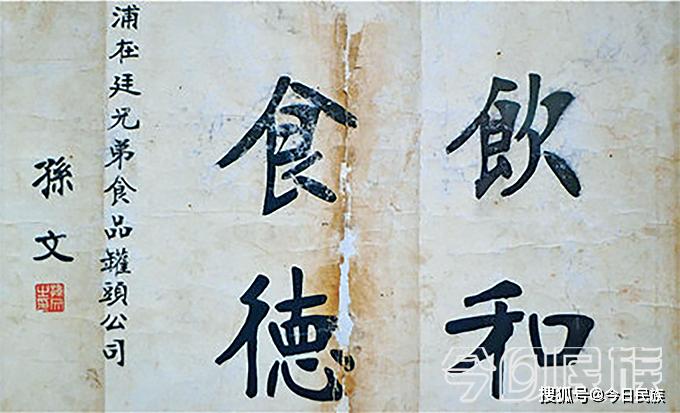 飲和
食德
浦在廷兄弟食品罐頭公司
孫文
今日民族
搜狐号@今日民族